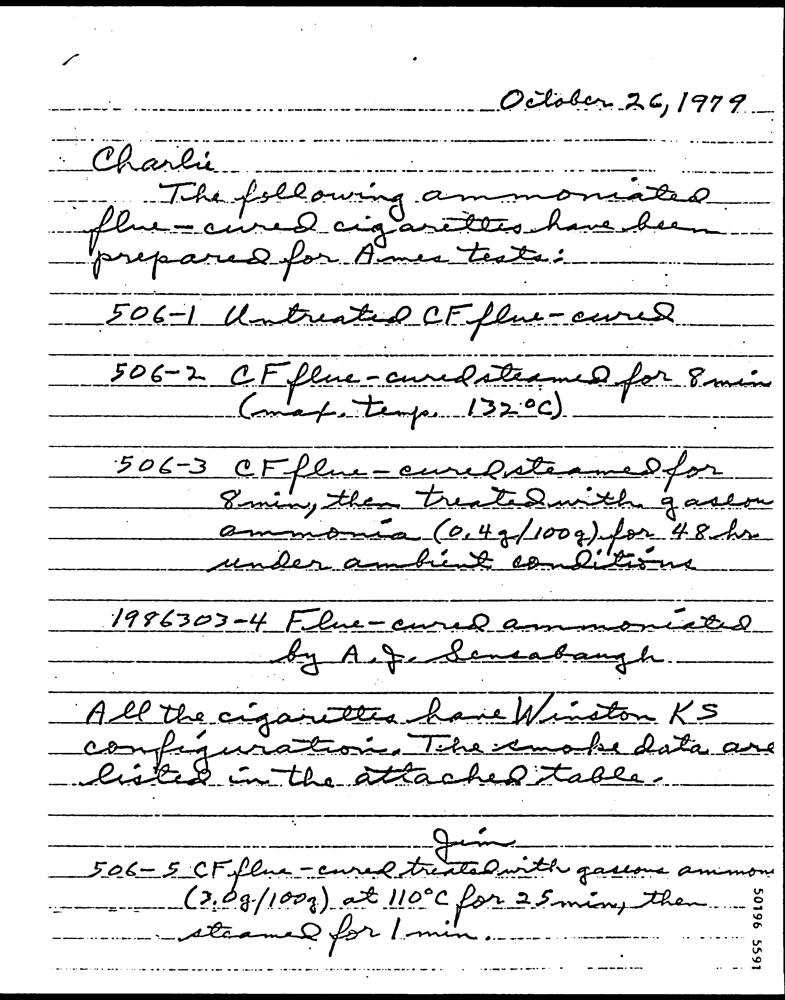 October 26, 1979
Charlie
The following ammoniated
flue-cured cigarettes have been
prepared for Ames tests:
506-1 Untreated CF flue-cured
506-2 CF flue-cured steamed for 8 min
(max. temp. 132°C)
506-3 CF flue-cured steamed for
8 min, then treated with gaseou
ammonia (0.4g/100g) for 48 hr
under ambient conditions
1986303-4 Flue-cured ammoniated
by A. J. Sensabaugh
All the cigarettes have Winston KS
configuration. The smoke data are
listed in the attached table.
Jim
506-5 CF flue-cured treated with gaseous ammon
(3.0g/100g) at 110°C for 25 min, then
steamed for 1 min.
50196 5591